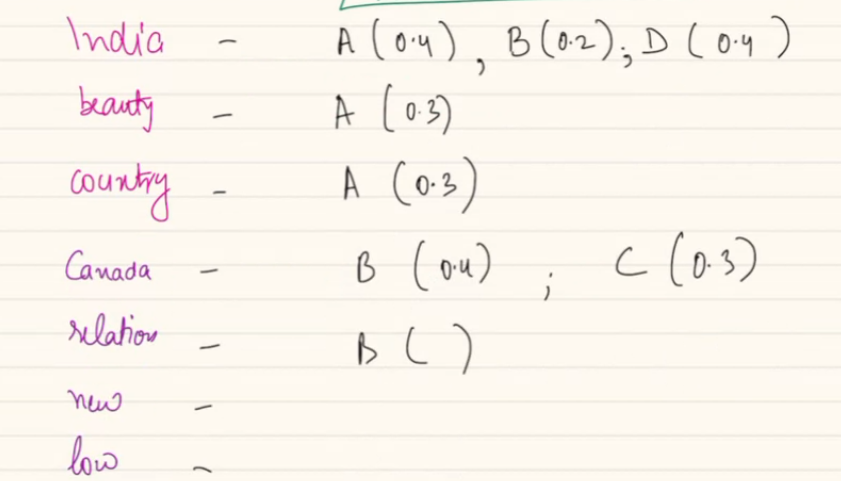 India - A (0.4), B (0.2); D (0.4)
beauty - A (0.3)
country - A (0.3)
Canada - B (0.4) ; C (0.3)
relation - B ( )
new -
low -